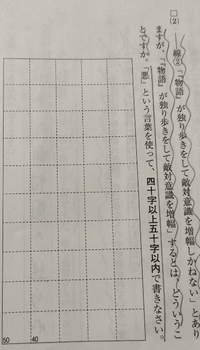 □(2) ──線②「『物語』が独り歩きをして敵対意識を増幅しかねない」とあり
ますが、「『物語』が独り歩きをして敵対意識を増幅」するとは、どういうこ
とですか。「悪」という言葉を使って、四十字以上五十字以内で書きなさい。
40
50